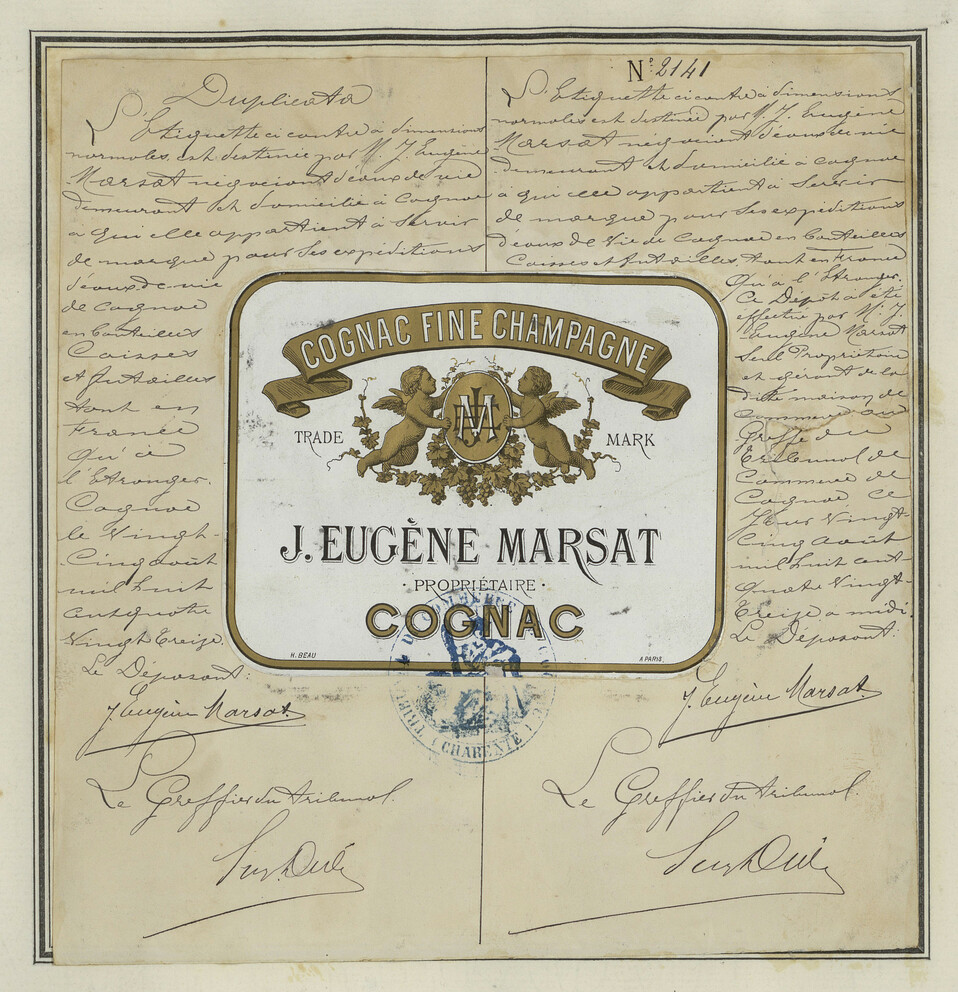 Duplicata
L'Etiquette ci contre à dimensions
normales, est destinée par M. J. Eugène
Marsat négociant d'eaux de vie
demeurant et domicilié à Cognac
à qui elle appartient à servir
de marque pour ses expéditions
d'eaux de vie
de Cognac
en Bouteilles
Caisses
et futailles
tant en
France
qu'à
l'Etranger.
Cognac
le Vingt-
Cinq août
mil huit
cent quatre
Vingt Treize.
Le Déposant:
J. Eugène Marsat
Le Greffier du Tribunal.
N° 2141
L'Etiquette ci contre à dimensions
normales est destinée par M. J. Eugène
Marsat négociant d'eaux de vie
demeurant et domicilié à Cognac
à qui elle appartient à servir
de marque pour ses expéditions
d'eaux de Vie de Cognac en Bouteilles
Caisses et futailles tant en France
qu'à l'Etranger.
Ce Dépôt a été
effectué par M. J.
Eugène Marsat
Seul Propriétaire
et gérant de la
dite maison de
Commerce au
Greffe du
Tribunal de
Commerce de
Cognac ce
Jour Vingt-
Cinq août
mil huit cent
quatre Vingt-
Treize a midi.
Le Déposant:
J. Eugène Marsat
Le Greffier du Tribunal.
COGNAC FINE CHAMPAGNE
TRADE MARK
J. EUGÈNE MARSAT
· PROPRIÉTAIRE ·
COGNAC
H. BEAU
A PARIS.
(CHARENTE)